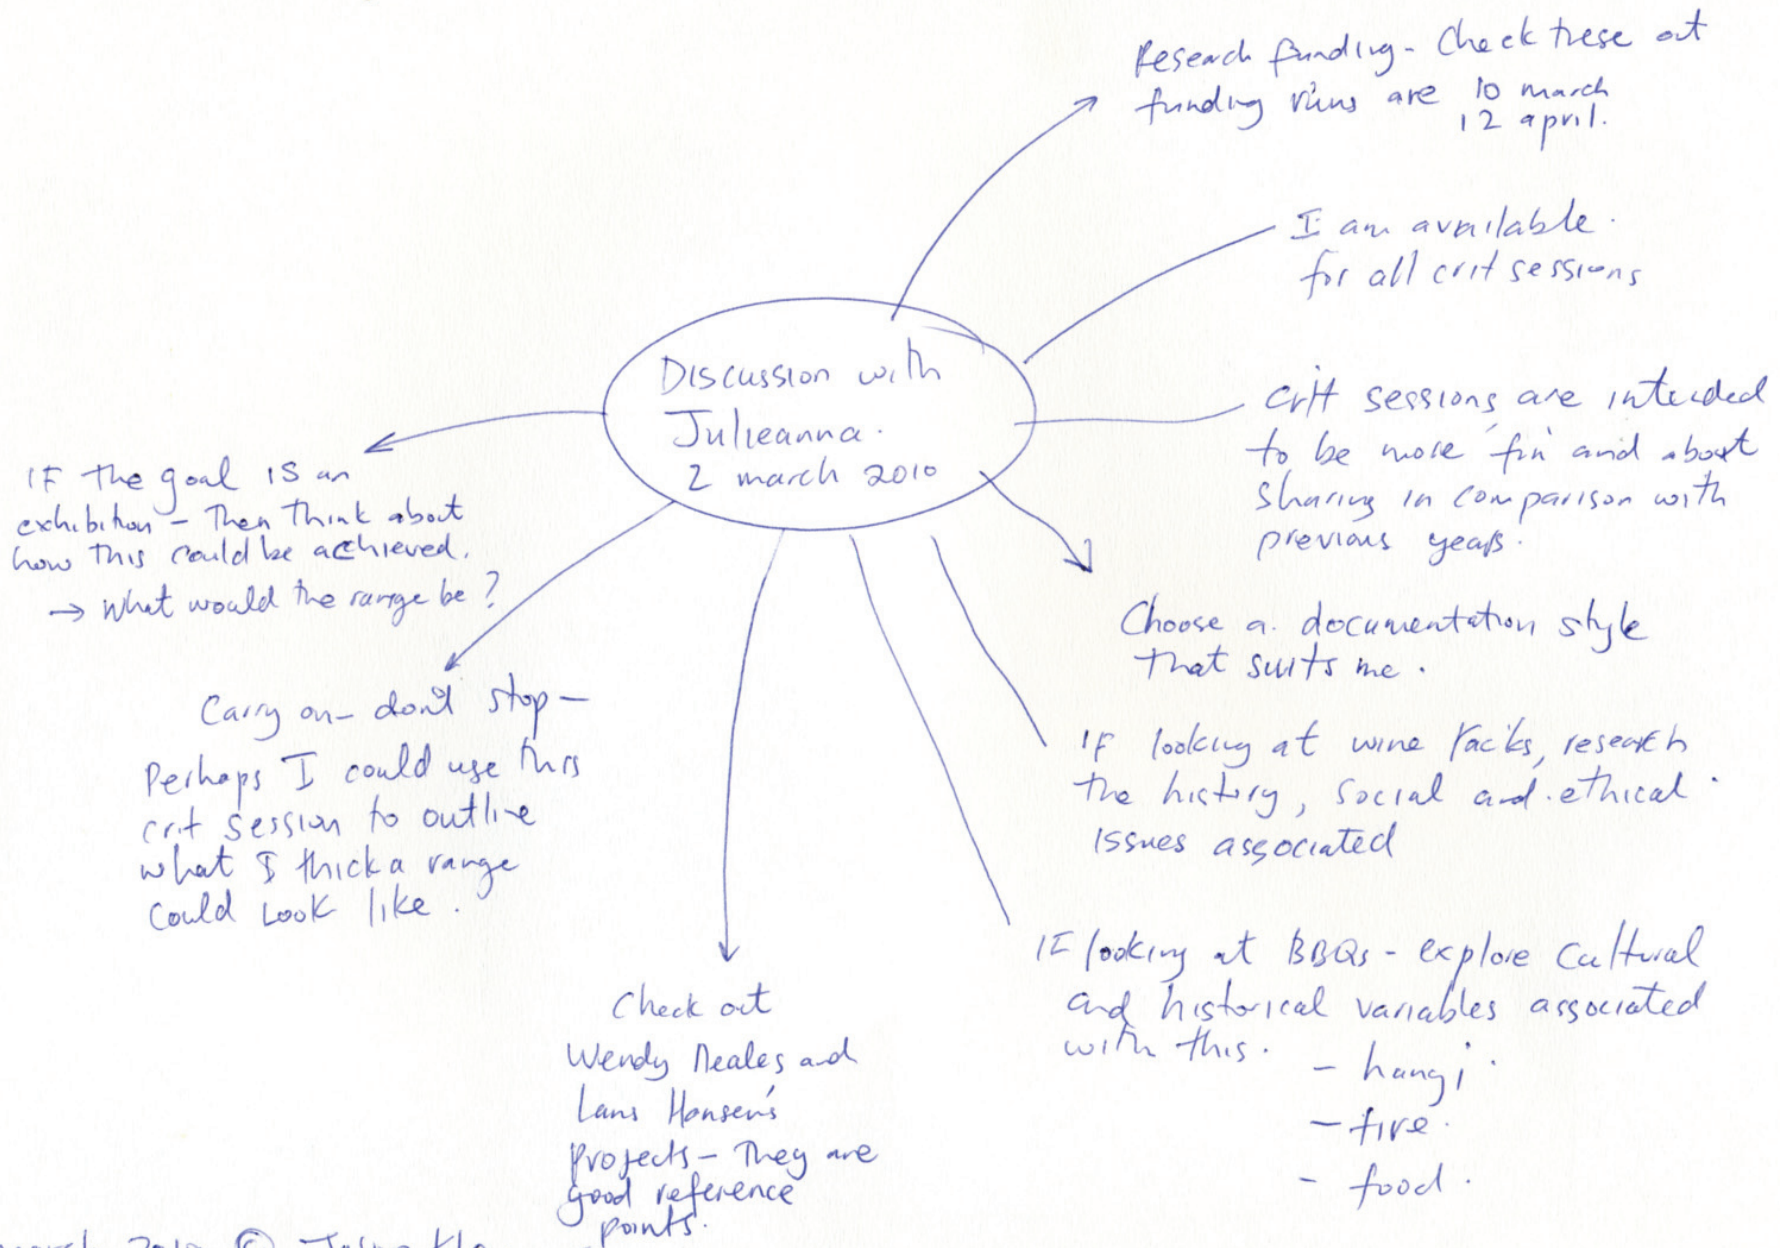 Discussion with
Julieanna.
2 march 2010
Research funding - Check these out
funding runs are 10 march
12 april.
I am available.
for all crit sessions
crit sessions are intended
to be more 'fun' and about
sharing in comparison with
previous years.
Choose a documentation style
that suits me.
IF looking at wine racks, research
the history, social and ethical
issues associated
IF looking at BBQs - explore cultural
and historical variables associated
with this.
- hangi
- fire.
- food.
Check out
Wendy Neales and
Lans Hansen's
projects - They are
good reference
points.
Carry on - don't stop -
Perhaps I could use this
crit session to outline
what I thick a range
could look like.
IF the goal is an
exhibition - Then Think about
how this could be achieved.
→ What would the range be?
2010 ©